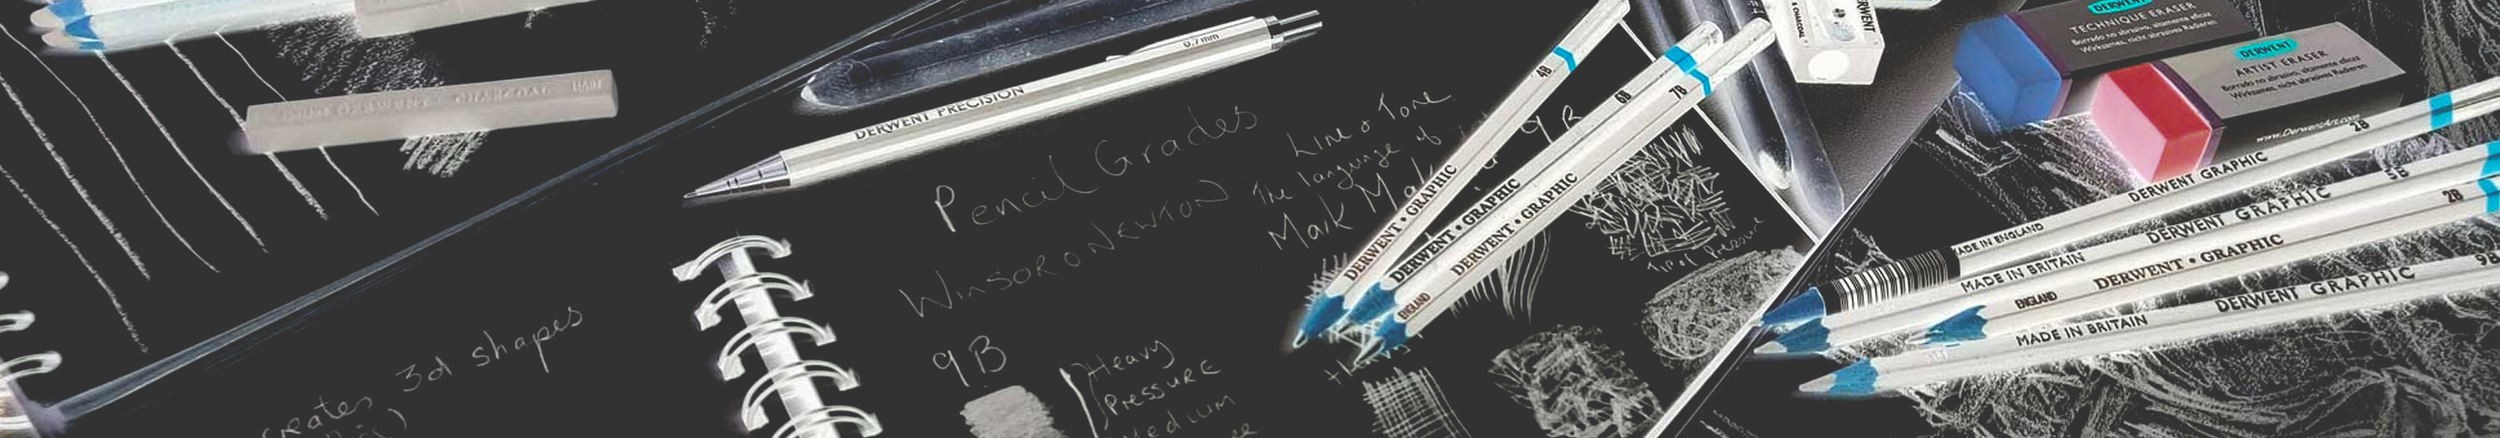 0.7mm
DERWENT PRECISION
Pencil Grades
WINSOR & NEWTON
9B
Heavy
PRESSURE
Medium
creates 3d shapes
Line & Tone
The language of
Mark
9B
4B
DERWENT • GRAPHIC
6B
DERWENT • GRAPHIC
7B
DERWENT • GRAPHIC
ENGLAND
Pressure
DERWENT
& CHARCOAL
DERWENT
TECHNIQUE ERASER
Borrado no abrasivo, altamente eficaz
Wirksames, nicht abrasives Radieren
DERWENT
ARTIST ERASER
Borrado no abrasivo, altamente eficaz
Wirksames, nicht abrasives Radieren
www.DerwentArt.com
MADE IN ENGLAND DERWENT GRAPHIC 2B
MADE IN BRITAIN DERWENT GRAPHIC 5B
ENGLAND DERWENT • GRAPHIC 2B
MADE IN BRITAIN DERWENT GRAPHIC 9B